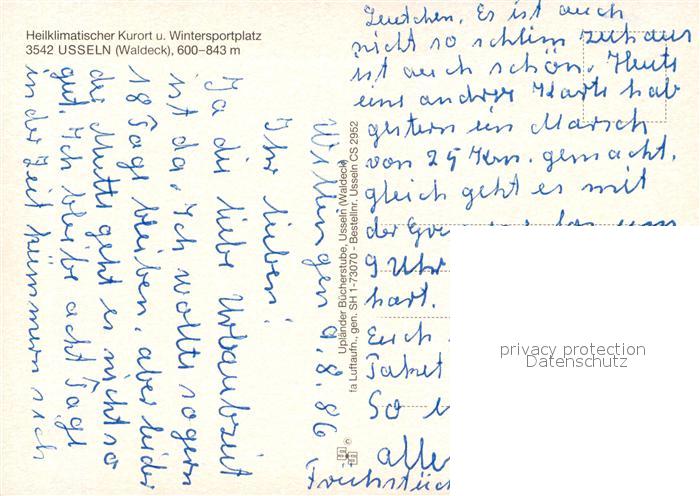 Heilklimatischer Kurort u. Wintersportplatz
3542 USSELN (Waldeck), 600–843 m
Willingen 9.8.86
Ihr lieben!
Ja die liebe Urlaubzeit
ist da. Ich wollte so gern
18 Tage bleiben, aber leider
der Mutter geht es nicht so
gut. Ich bleibe acht Tage
in der Zeit kümmern sich
Leutchen. Es ist auch
nicht so schlim zuhaus
ist auch schön. Heute
eine andere Karte hab
gestern ein Marsch
von 25 Km. gemacht.
gleich geht es mit
der
9 Uhr
hart.
Euch
Paket
So
alle
Frühstück
Upländer Bücherstube, Usseln (Waldeck)
fa Luftaufn., gen. SH 1-73070 - Bestellnr. Usseln CS 2952
©
privacy protection
Datenschutz